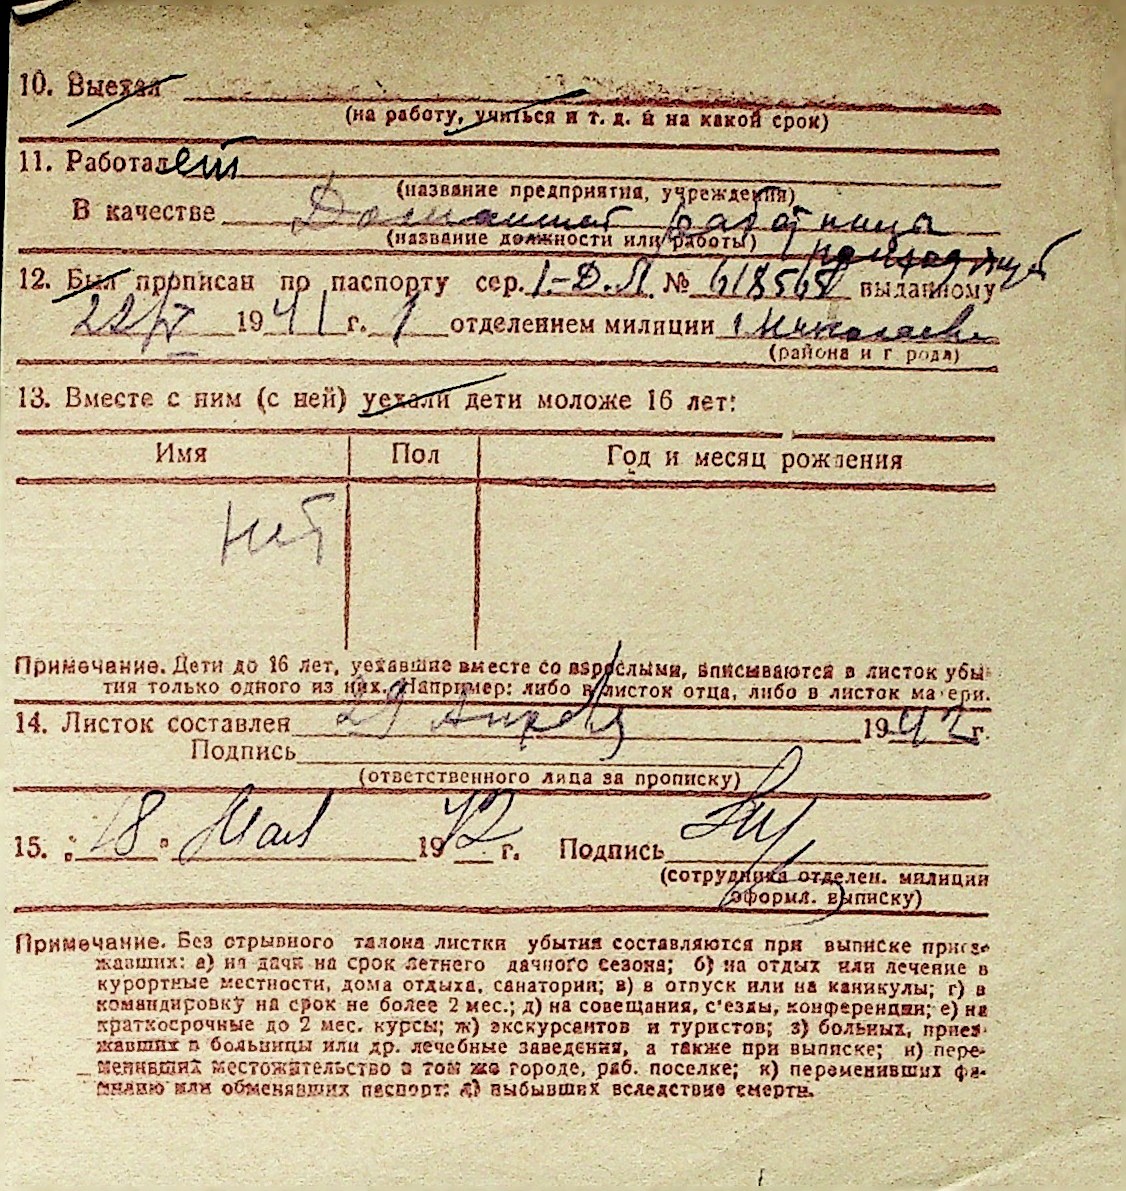 10. Выехал
(на работу, учиться и т. д. и на какой срок)
11. Работает
(название предприятия, учреждения)
В качестве Домашней работницы
(название должности или работы) приходящей
12. Был прописан по паспорту сер. I-Д.Л. № 618568 выданному
22/V 1941 г. 1 отделением милиции г Николаева
(района и г рода)
13. Вместе с ним (с ней) уехали дети моложе 16 лет:
Имя Пол Год и месяц рождения
нет
Примечание. Дети до 16 лет, уехавшие вместе со взрослыми, вписываются в листок убы-
тия только одного из них. Например: либо в листок отца, либо в листок матери.
14. Листок составлен 29 Апреля 1942 г.
Подпись
(ответственного лица за прописку)
15. „18" Мая 1942 г. Подпись
(сотрудника отделен. милиции
оформл. выписку)
Примечание. Без отрывного талона листки убытия составляются при выписке приез-
жавших: а) на дачи на срок летнего дачного сезона; б) на отдых или лечение в
курортные местности, дома отдыха, санатории; в) в отпуск или на каникулы; г) в
командировку на срок не более 2 мес.; д) на совещания, с'езды, конференции; е) на
краткосрочные до 2 мес. курсы; ж) экскурсантов и туристов; з) больных, приез-
жавших в больницы или др. лечебные заведения, а также при выписке; и) пере-
менивших местожительство в том же городе, раб. поселке; к) переменивших фа-
милию или обменявших паспорт; л) выбывших вследствие смерти.